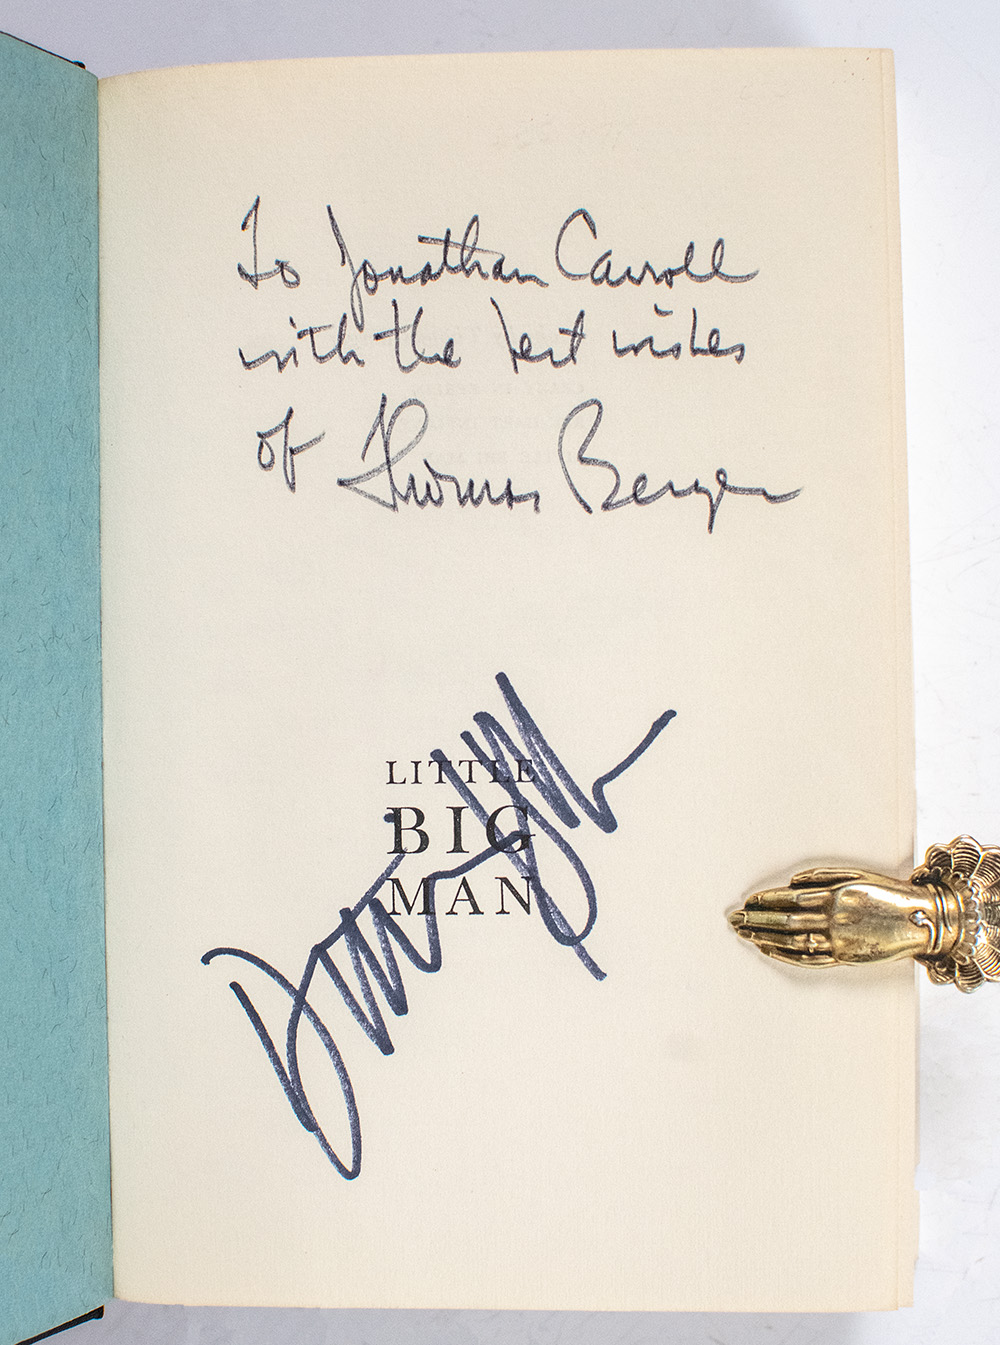 To Jonathan Carroll
with the best wishes
of Thomas Berger
LITTLE
BIG
MAN